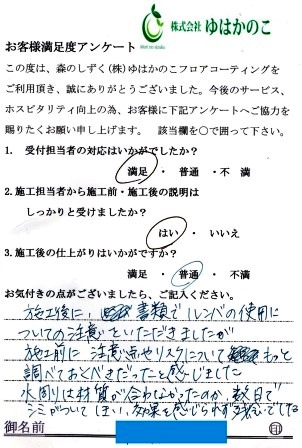 株式会社 ゆはかのこ
お客様満足度アンケート
この度は、森のしずく(株)ゆはかのこフロアコーティングを
ご利用頂き、誠にありがとうございました。今後のサービス、
ホスピタリティ向上の為、お客様に下記アンケートへご協力を
賜りたくお願い申し上げます。 該当欄を○で囲って下さい。
1. 受付担当者の対応はいかがでしたか?
満足 ・ 普通 ・ 不満
2. 施工担当者から施工前・施工後の説明は
しっかりと受けましたか?
はい ・ いいえ
3. 施工後の仕上がりはいかがですか?
満足 ・ 普通 ・ 不満
お気付きの点がございましたら、ご記入ください。
施工後に、書類でルンバの使用に
ついての注意といただきましたが
施工前に注意点やリスクについてもっと
調べておくべきだったと感じました
水周りは材質が合わなかったのか、数日で
シミがついてしまい、効果を感じられず残念でした
御名前 印